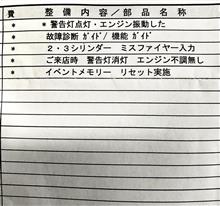 費 整備内容／部品名称
* *警告灯点灯・エンジン振動した
* 故障診断 ガイド/ 機能 ガイド
* 2・3シリンダー ミスファイヤー入力
* ご来店時 警告灯消灯 エンジン不調無し
* イベントメモリー リセット実施